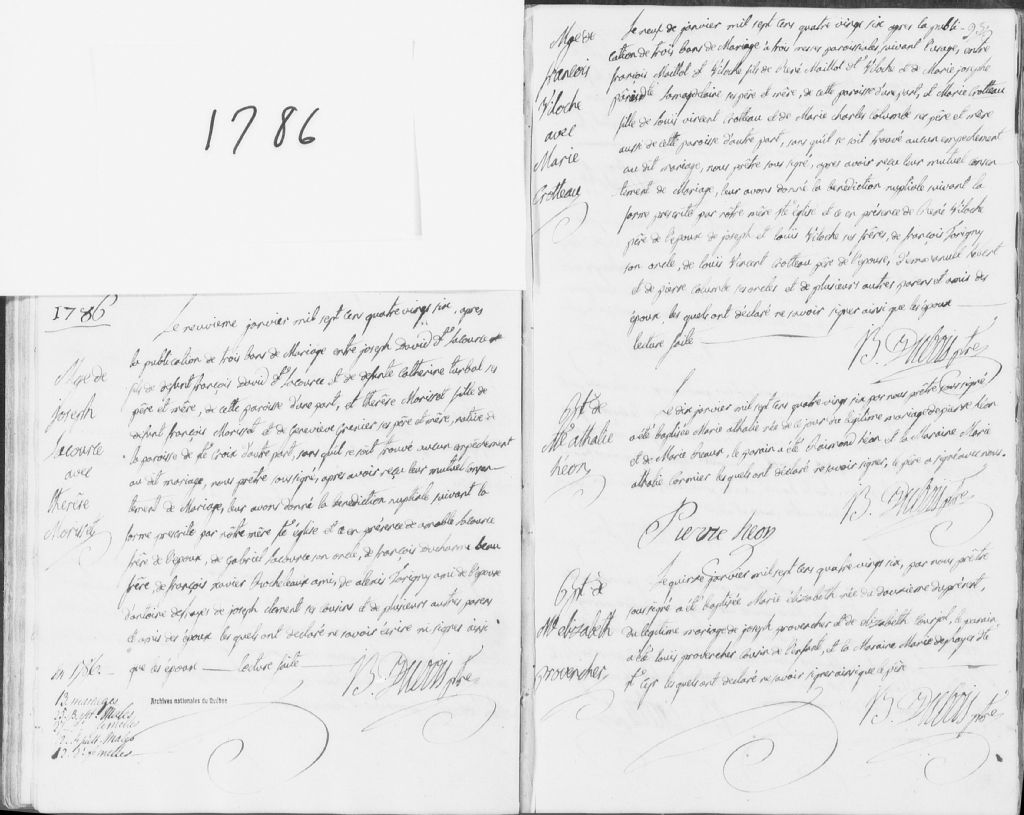 1786
1786
Mge de
joseph
Lacource
avec
therèse
Morisset
Le neuvieme janvier mil sept cens quatre vingt six, apres
la publication de trois bans de Mariage entre joseph David dt Lacource
fils de defunt françois david dt Lacource et de defunte Catherine turbal ses
père et mère, de cette paroisse d'une part, et therèse Morisset fille de
defunt françois Morisset et de Genevieve Grenier ses père et mère, native de
la paroisse de ste Croix d'autre part, sans qu'il se soit trouvé aucun empechement
au dit mariage, nous prêtre soussigné, apres avoir reçu leur mutuel consen-
tement de Mariage, leur avons donné la benediction nuptiale suivant la
forme prescrite par nôtre mère ste église et ce en présence de amable Lacource
frère de l'epoux, de Gabriel Lacource son oncle, de françois ducharme beau
frère, de françois xavier Rocheleaux ami, de alexis Torigny ami de l'epouse
d'antoine deshayes de joseph clement ses cousins et de plusieurs autres parens
et amis des époux les quels ont declaré ne savoir écrire ni signer ainsi
que les époux lecture faite
B. Dubois ptre
en 1786.
13 mariages
Bapt. Males
femelles
Sepult. Males
femelles
Archives nationales du Québec
Mge de
françois
Viloche
avec
Marie
Crotteau
Le neuf de janvier mil sept cens quatre vingt six apres la publi-
cation de trois bans de Mariage à trois messes paroissiales suivant l'usage, entre
françois Maillot dt Viloche fils de René Maillot dt Viloche et de Marie josephe
Lamagdelaine ses père et mère, de cette paroisse d'une part, et Marie Crotteau
fille de Louis vincent Crotteau et de Marie charles Columbe ses père et mère
aussi de cette paroisse d'autre part, sans qu'il se soit trouvé aucun empechement
au dit mariage, nous prêtre sous signé, apres avoir reçu leur mutuel consen
tement de Mariage, leur avons donné la benediction nuptiale suivant la
forme prescrite par nôtre mère ste église et ce en présence de René Viloche
père de l'epoux de joseph et Louis Viloche ses frères, de françois Torigny
son oncle, de Louis Vincent Crotteau père de l'épouse, d'emmanuel
et de pierre Columbe ses oncles et de plusieurs autres parens et amis des
époux, les quels ont déclaré ne savoir signer ainsi que les époux
lecture faite
B. Dubois ptre
Bpt. de
Me athalie
héon
Le dix janvier mil sept cens quatre vingt six par nous prêtre soussigné
a été baptisée Marie athalie née de ce jour du légitime mariage de pierre héon
et de Marie, le parain a été Raimond héon et la Maraine Marie
athalie Cormier les quels ont déclaré ne savoir signer, le père a signé avec nous.
B. Dubois ptre
Pierre heon
Bpt. de
Me elizabeth
provencher
Le quinze janvier mil sept cens quatre vingt six, par nous prêtre
soussigné a été baptisée Marie élizabeth née du douzieme du présent,
du legitime mariage de joseph provencher et de elizabeth, le parain
a été Louis provencher cousin de l'enfant, et la Maraine Marie deshayes dte
st Cyr les quels ont déclaré ne savoir signer ainsi que le père
B. Dubois ptre